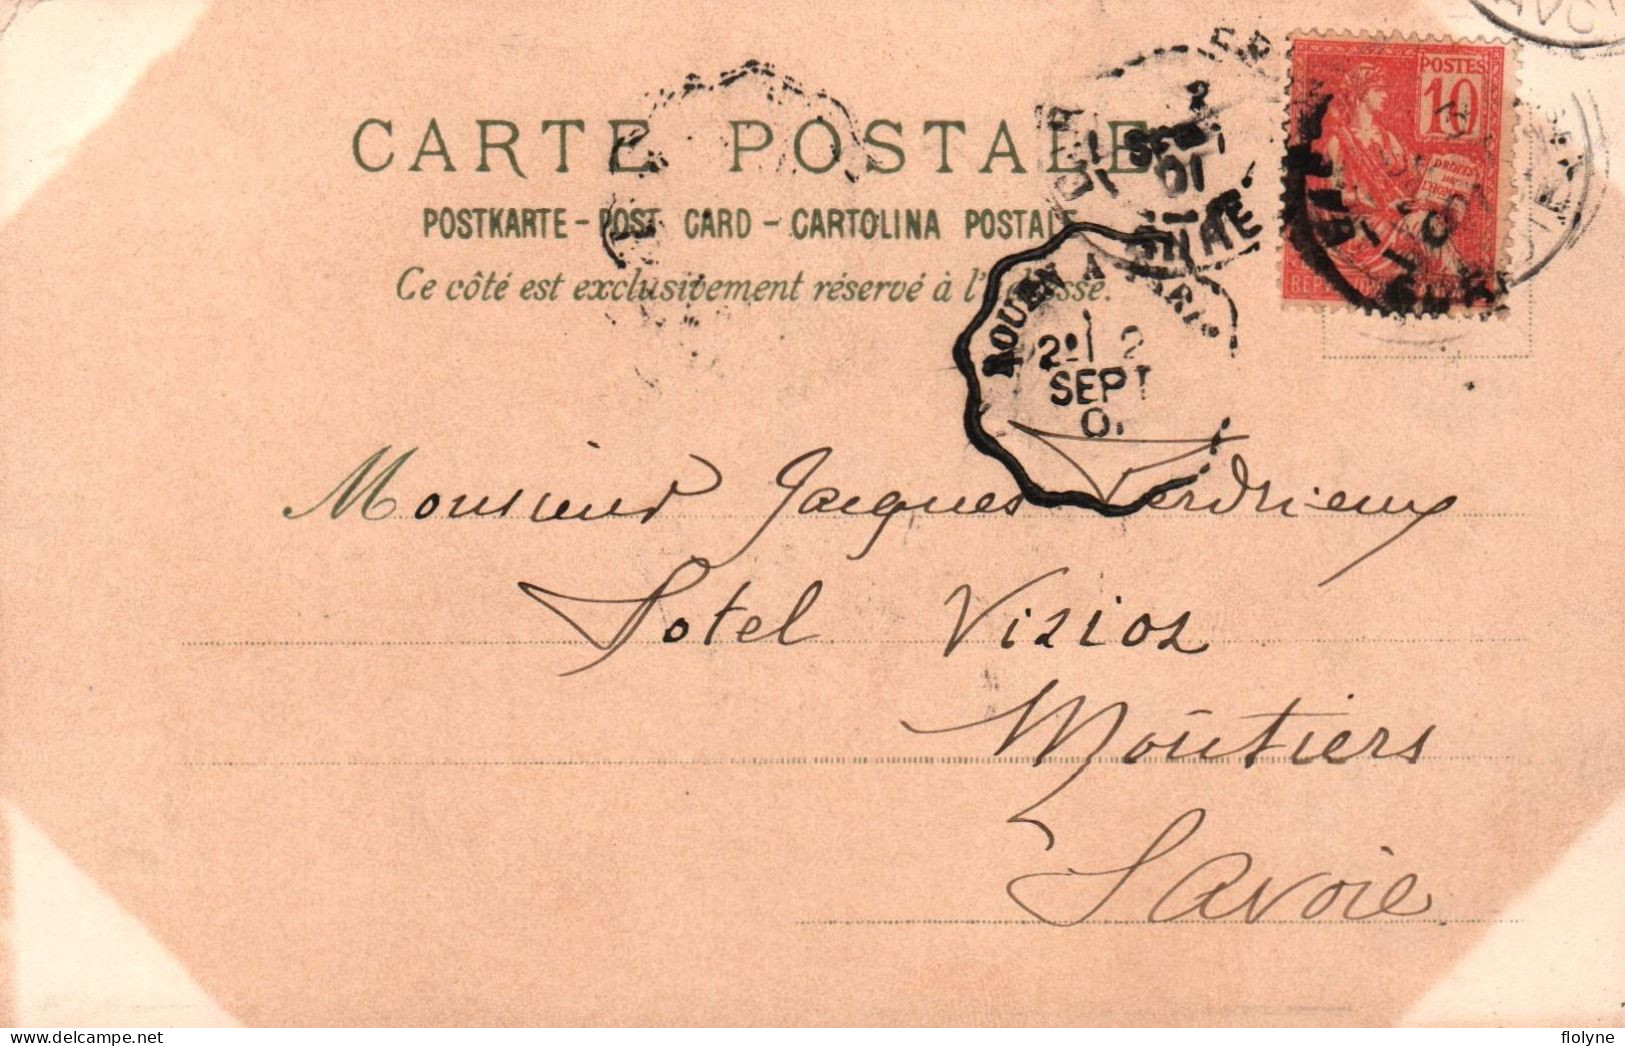 CARTE POSTALE
POSTKARTE - POST CARD - CARTOLINA POSTALE
Ce côté est exclusivement réservé à l'adresse.
POSTES
10
DROITES DE L'HOMME
2
SEPT
01
ROUEN A PARIS
2º
SEPT
Monsieur Jacques Verdrieux
Hotel Vizioz
Moûtiers
Savoie
delcampe.net
flolyne